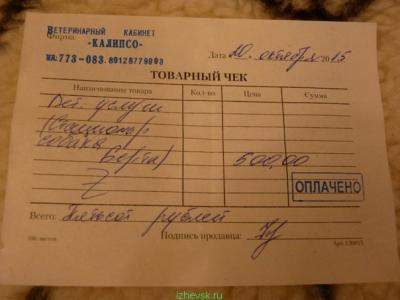 ВЕТЕРИНАРНЫЙ КАБИНЕТ
Фирма:
«КАЛИПСО»
773-083.
Дата 20. октября 2015
ТОВАРНЫЙ ЧЕК
Наименование товара Кол-во Цена Сумма
Вет. услуги
(Стационар
собака
Берта) 500,00
Z
ОПЛАЧЕНО
Всего: Пятьсот рублей
Подпись продавца:
izhevsk.ru